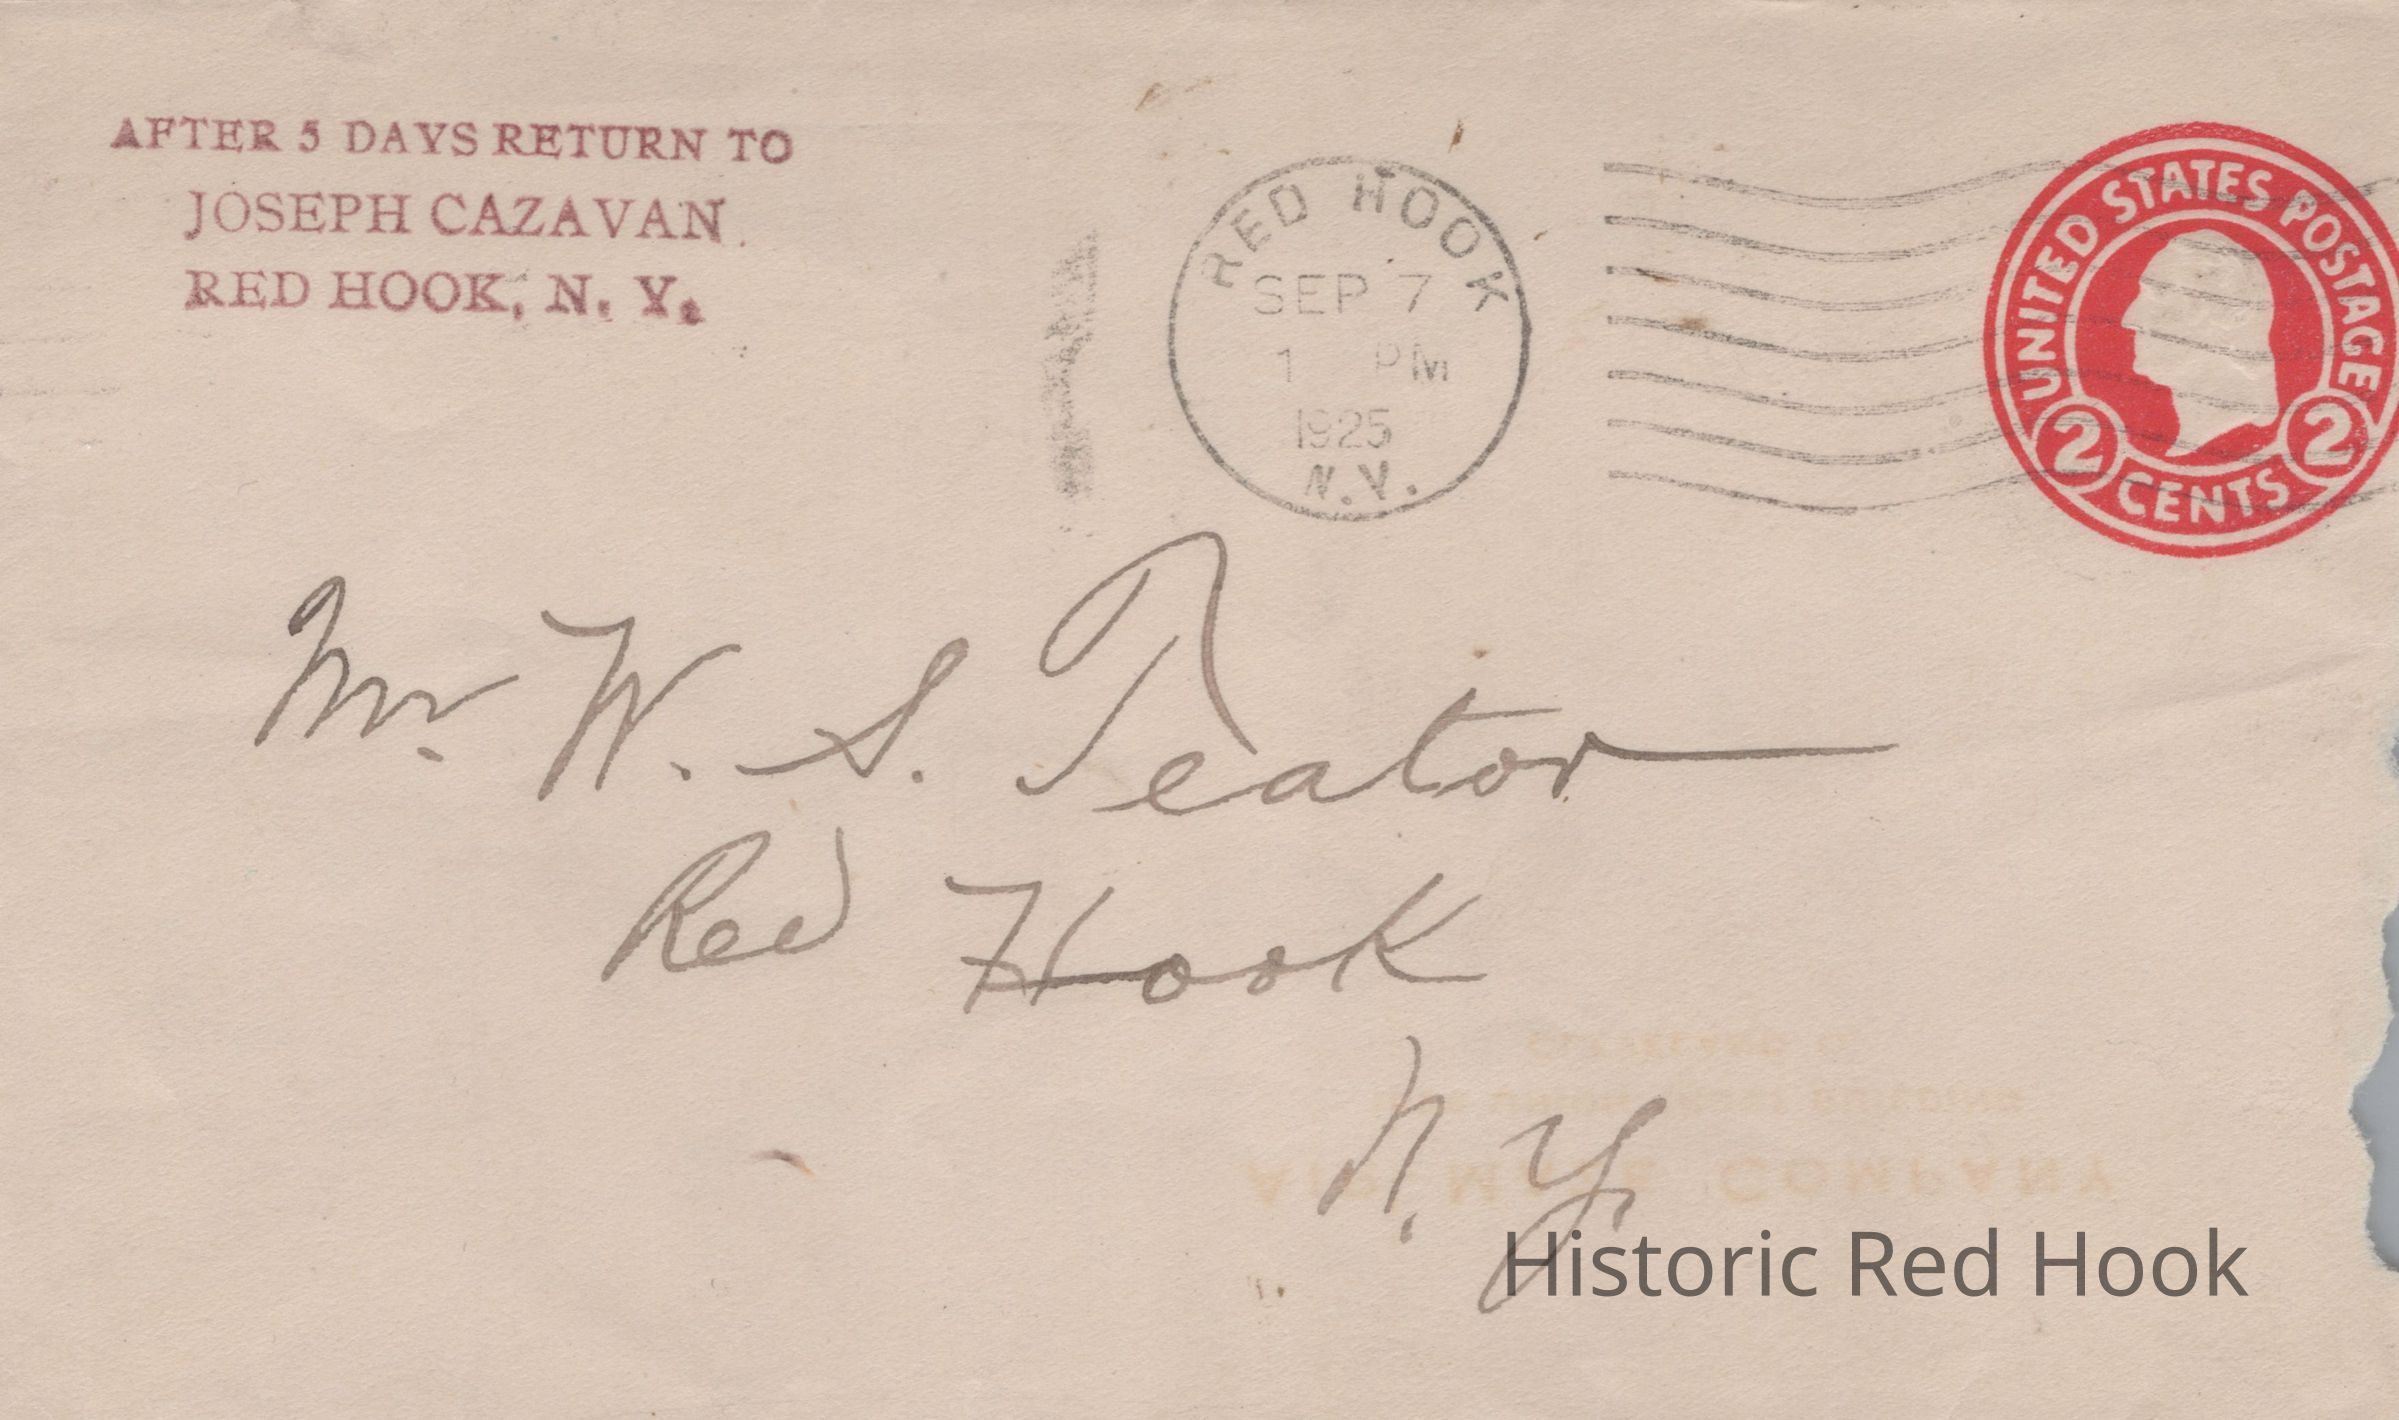 AFTER 5 DAYS RETURN TO
JOSEPH CAZAVAN
RED HOOK, N. Y.
RED HOOK
SEP 7
1 PM
1925
N.Y.
UNITED STATES POSTAGE
2 CENTS 2
Mr. W. S. Teator
Red Hook
N. Y.
COMPANY
Historic Red Hook